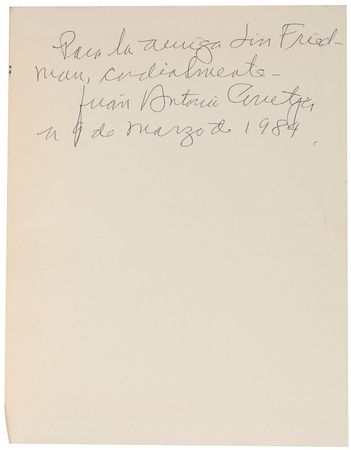 Para la amiga Lin Fried-
man, cordialmente—
Juan Antonio Corretjer
a 9 de marzo de 1984.